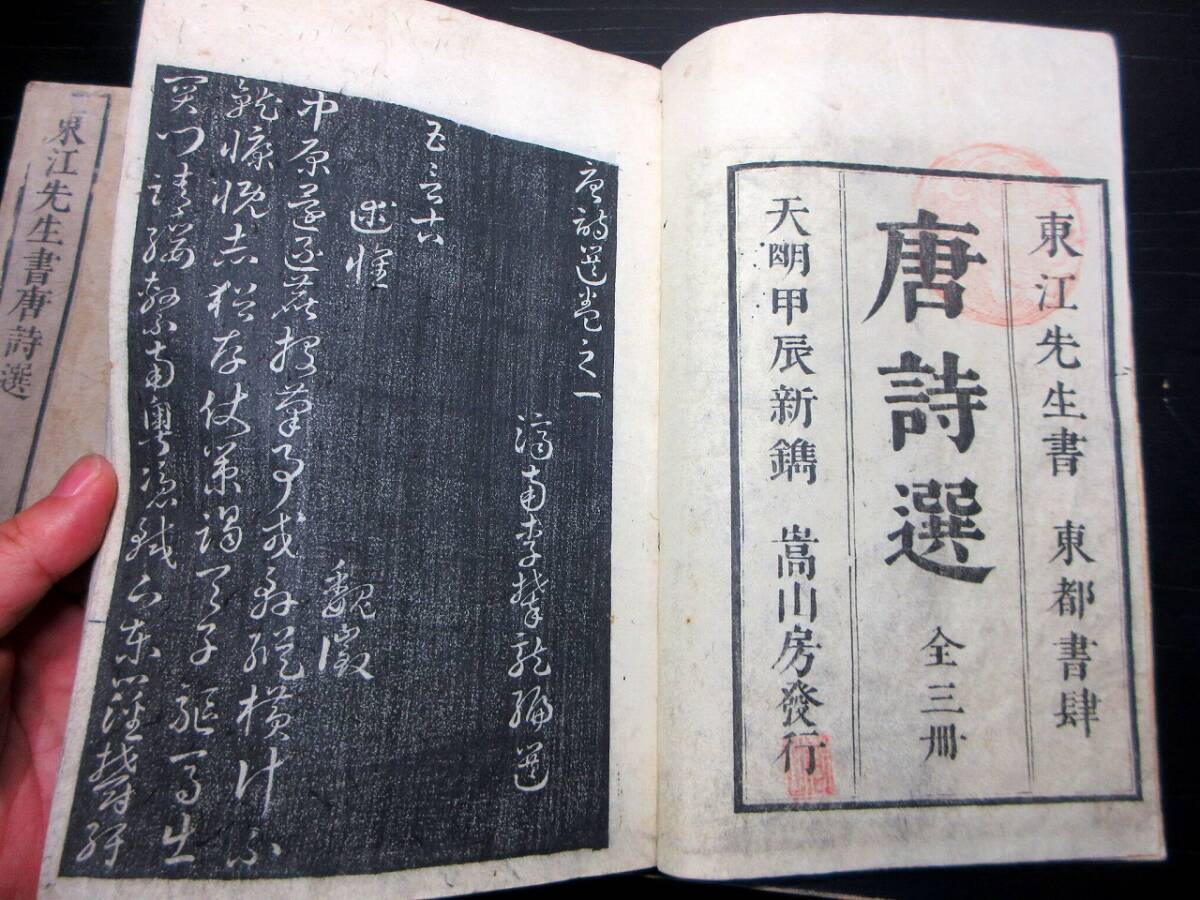 東江先生書 東都書肆
唐詩選 全三冊
天明甲辰新鐫 嵩山房發行
唐詩選卷之一
濟南李攀龍編選
五言古
述懷
魏徵
中原還逐鹿投筆事戎軒縱橫計不
就慷慨志猶存仗策謁天子驅馬出
關門請纓繫南粤憑軾下東藩鬱紆
東江先生書唐詩選